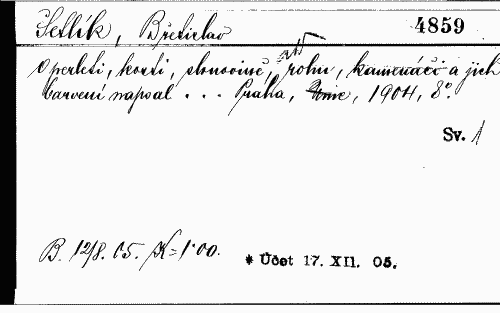 Šetlík, Břetislav 4859
O perleti, kosti, slonovině, rohu, kamenáči a jich
barvení napsal . . . Praha, 1904, 8°.
Sv. 1
B. 12/8. 05. K=1·00. * Účet 17. XII. 05.